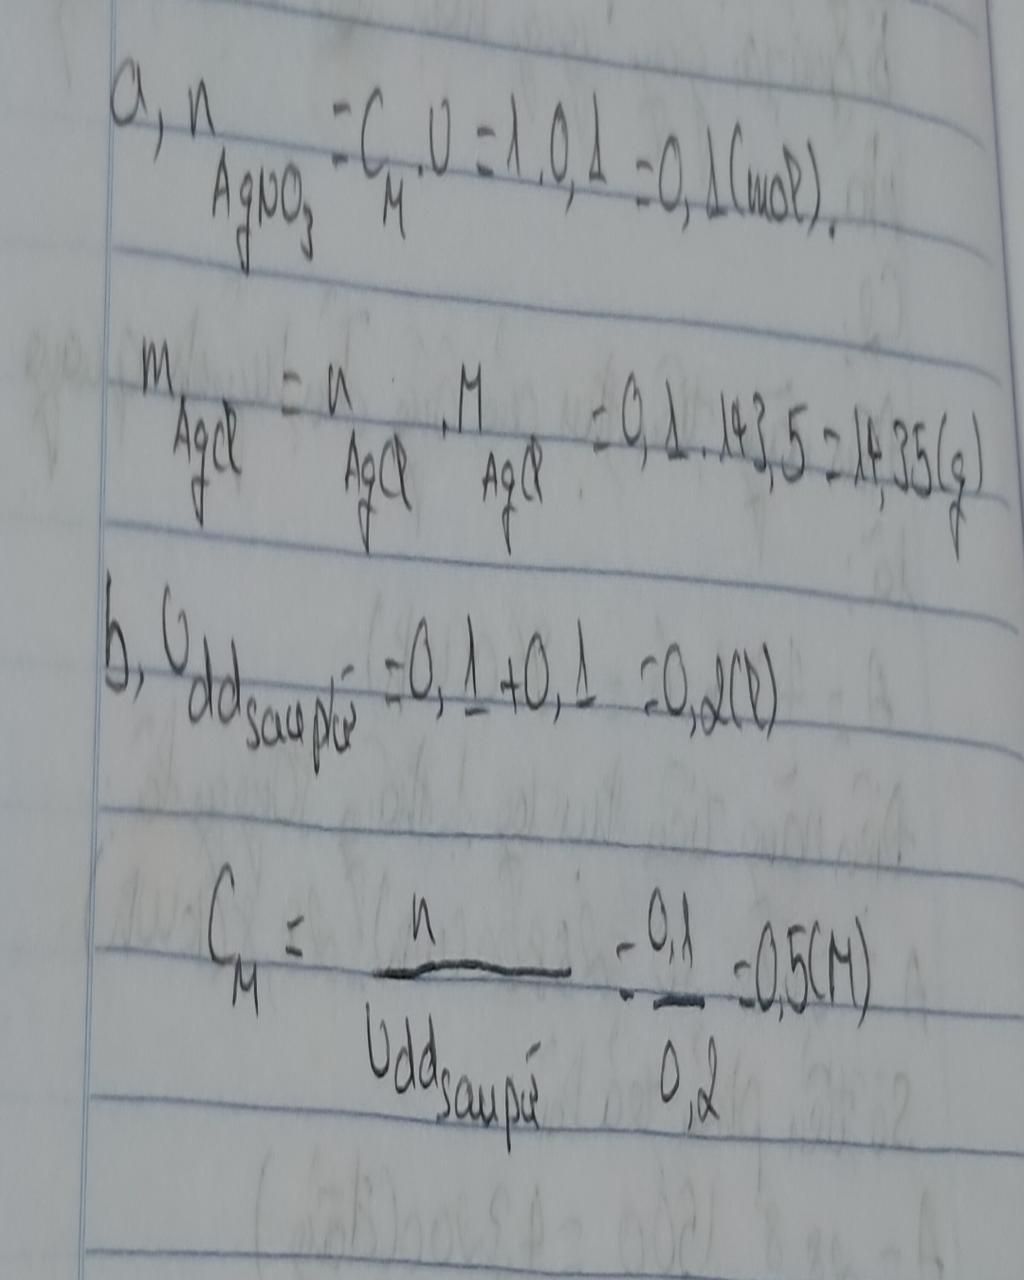 a, n AgNO3 = CM.V = 1.0,1 = 0,1(mol).
m AgCl = n AgCl . M AgCl = 0,1.143,5 = 14,35(g)
b, Vdd sau pứ = 0,1 + 0,1 = 0,2(l)
CM = n / Vdd sau pứ = 0,1 / 0,2 = 0,5(M)